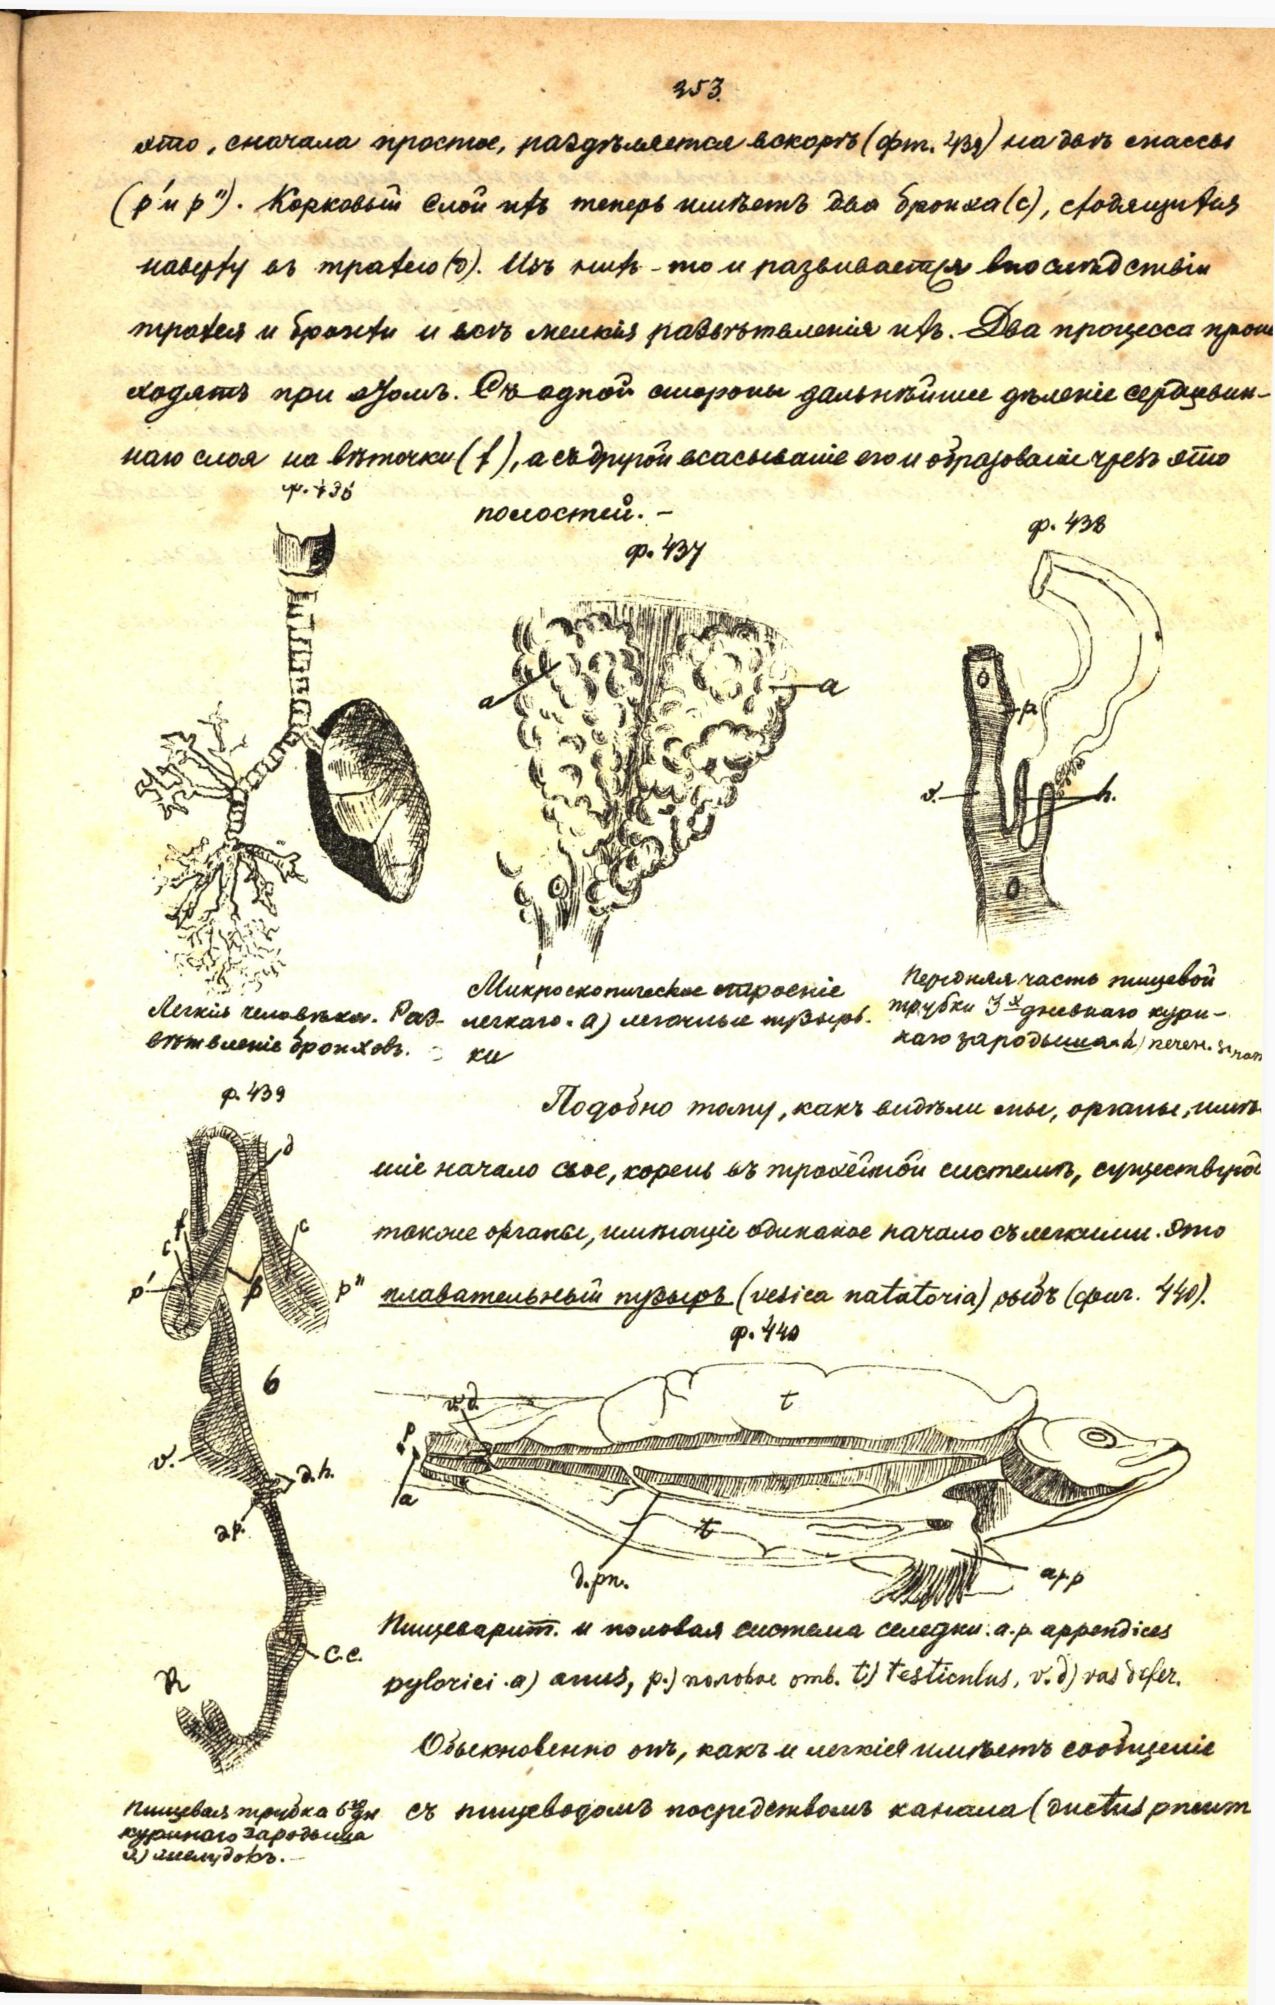 353.
это, сначала простое, раздѣляется вскорѣ (фиг. 439) на двѣ массы
(p' и p"). Корковый слой ихъ теперь имѣетъ два бронха (c), сходящихся
наверху въ трахею (d). Изъ нихъ-то и развивается впослѣдствіи
трахея и бронхи и всѣ мелкія развѣтвленія ихъ. Два процесса прои
ходятъ при этомъ. Съ одной стороны дальнѣйшее дѣленіе сердцевин-
наго слоя на вѣточки (f), а съ другой всасываніе его и образованіе чрезъ это
полостей. –
ф. 436
ф. 437
ф. 438
a
a
p.
v.
h.
Легкія человѣка. Раз-
вѣтвленіе бронховъ.
Микроскопическое строеніе
легкаго. a) легочные пузырь-
ки
Передняя часть пищевой
трубки 3х дневнаго кури-
наго зародыша h) печен.
ф. 439
d
f
c
c
p'
p
p"
b
v.
d.h.
d.p.
c.c.
R
Пищевая трубка 6го дн
куринаго зародыша
v) желудокъ. –
Подобно тому, какъ видѣли мы, органы, имѣ
шіе начало свое, корень въ трахейной системѣ, существуют
также органы, имѣющіе одинакое начало съ легкими. Это
плавательный пузырь (vesica natatoria) рыбъ (фиг. 440).
ф. 440
v.d.
t
p
a
t
d.pn.
a.p.p
Пищеварит. и половая система селедки. a.p. appendices
pylorici. a) anus, p.) половое отв. t) testiculus, v.d) vas defer.
Обыкновенно онъ, какъ и легкія имѣетъ сообщеніе
съ пищеводомъ посредствомъ канала (ductus pneum